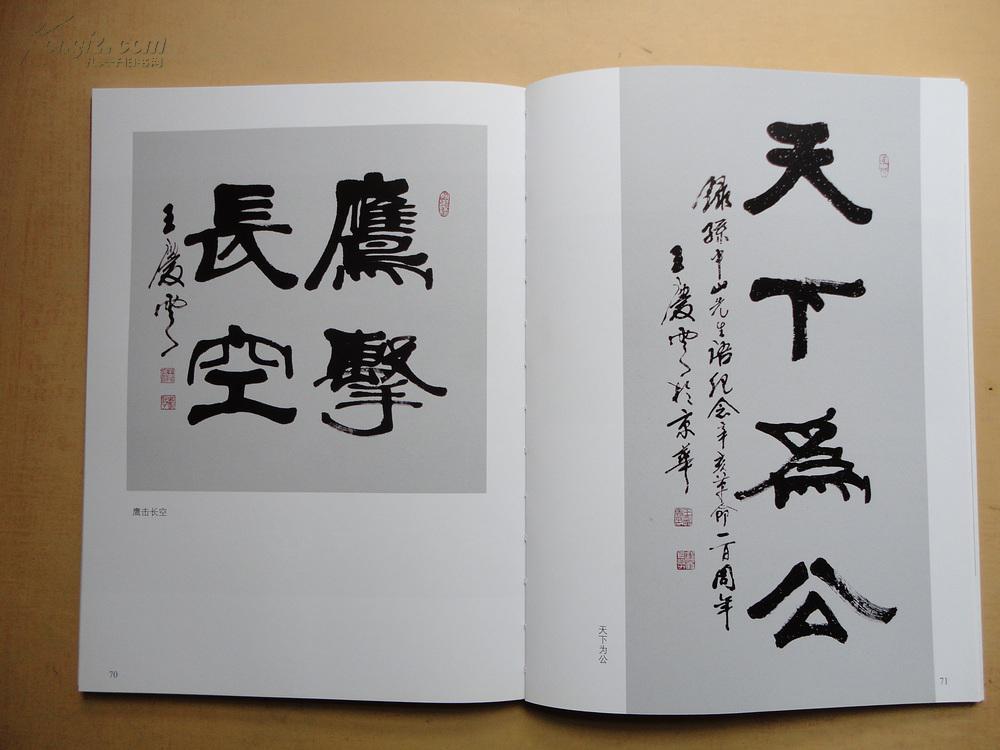 鷹擊
長空
王慶雲
鹰击长空
70
天下為公
錄孫中山先生語紀念辛亥革命一百周年
王慶雲於京華
天下为公
71